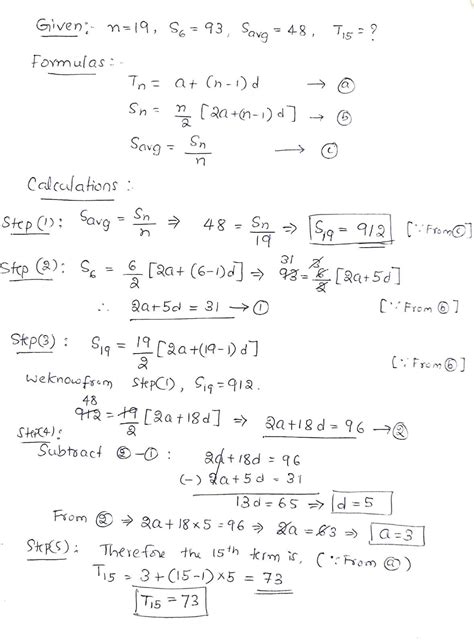 Given:- n=19, S₆ = 93, Savg = 48, T₁₅ = ?
Formulas:-
Tn = a+(n-1)d → ⓐ
Sn = n/2 [2a+(n-1)d] → ⓑ
Savg = Sn/n → ⓒ
Calculations:
Step(1): Savg = Sn/n ⇒ 48 = Sn/19 ⇒ S₁₉ = 912 [∵From ⓒ]
Step(2): S₆ = 6/2 [2a+(6-1)d] ⇒ 31 93 = 6/2 [2a+5d]
∴ 2a+5d = 31 → ① [∵From ⓑ]
Step(3): S₁₉ = 19/2 [2a+(19-1)d] [∵From ⓑ]
we know from Step(1), S₁₉ = 912.
48 912 = 19/2 [2a+18d] ⇒ 2a+18d = 96 → ②
Step(4):
Subtract ②-①: 2a+18d = 96
(-) 2a+5d = 31
13d = 65 ⇒ d=5
From ② ⇒ 2a+18×5 = 96 ⇒ 2a = 63 ⇒ a=3
Step(5): Therefore the 15th term is, (∵From ⓐ)
T₁₅ = 3+(15-1)×5 = 73
T₁₅ = 73